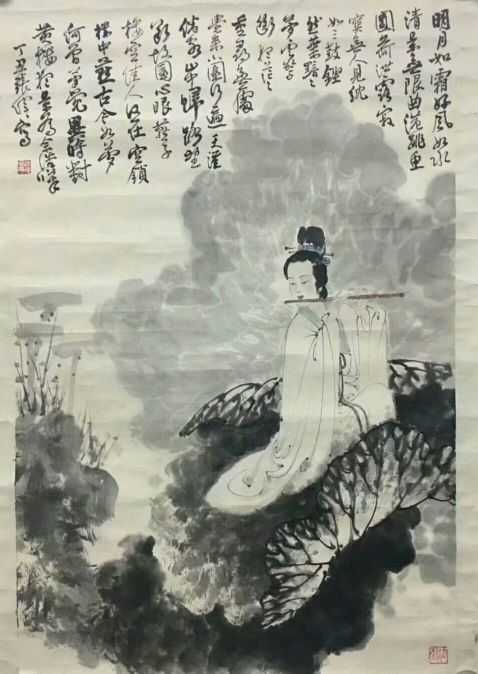 明月如霜好風如水
清景無限曲港跳魚
圓荷泄露寂
寞無人見紞
如三鼓鏗
然葉黯黯
夢雲驚
斷夜茫茫
重尋無處
覺來小園行遍天涯
倦客山中歸路望
斷故園心眼燕子
樓空佳人何在空鎖
樓中燕古今如夢
何曾夢覺異時對
黃樓夜景為余浩嘆
丁丑